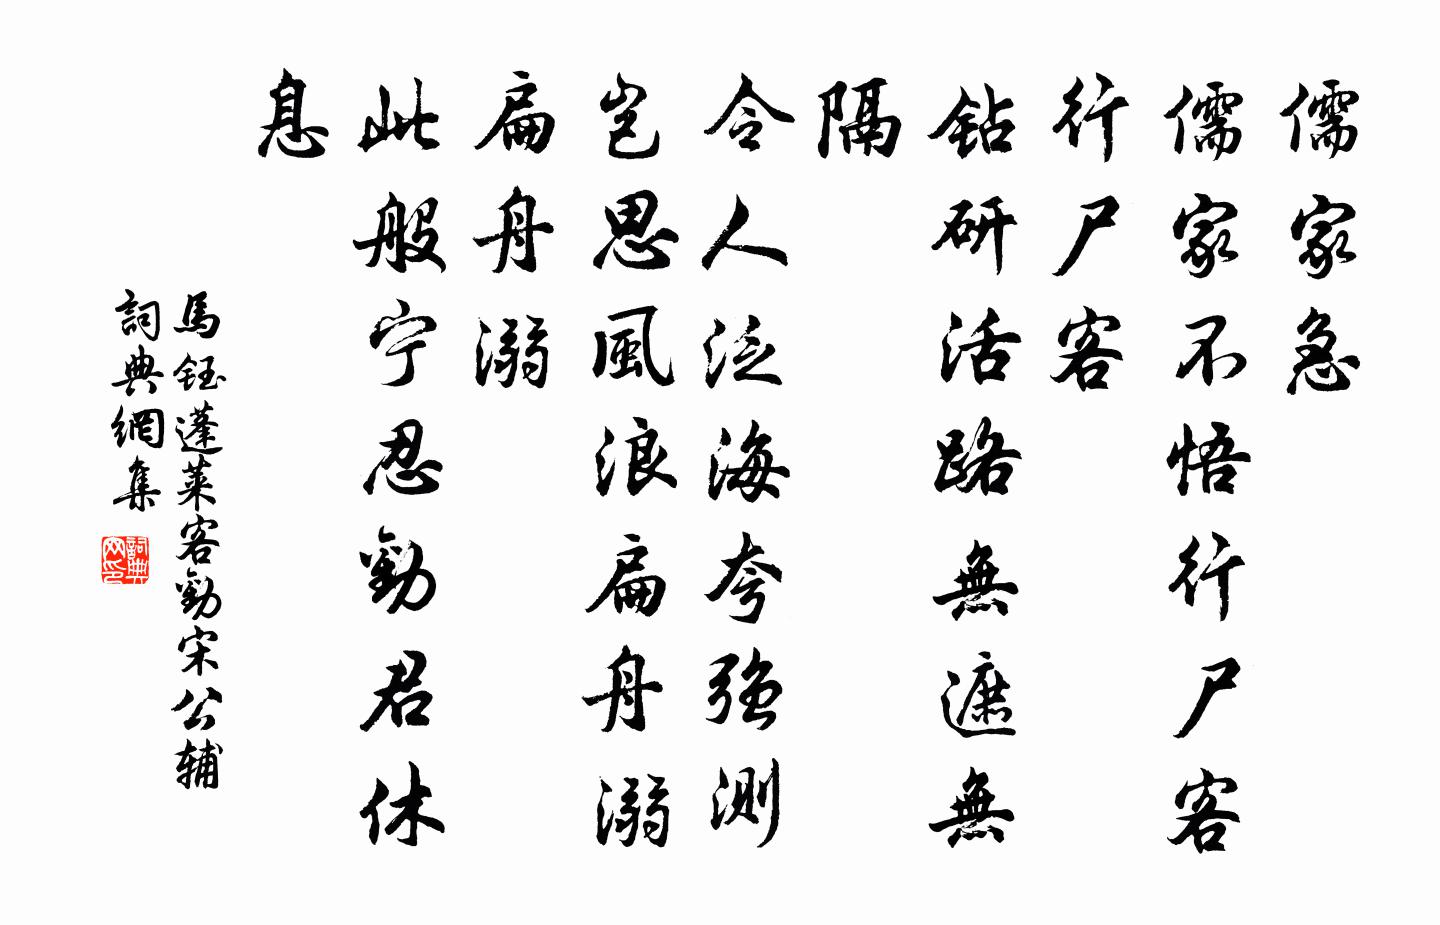 儒家急
儒家不悟行尸客
行尸客
钻研活路無遮無
隔
令人泛海夸强測
岂思風浪扁舟溺
扁舟溺
此般宁忍勸君休
息
馬鈺蓬莱客勸宋公辅
詞典網集
詞典网印